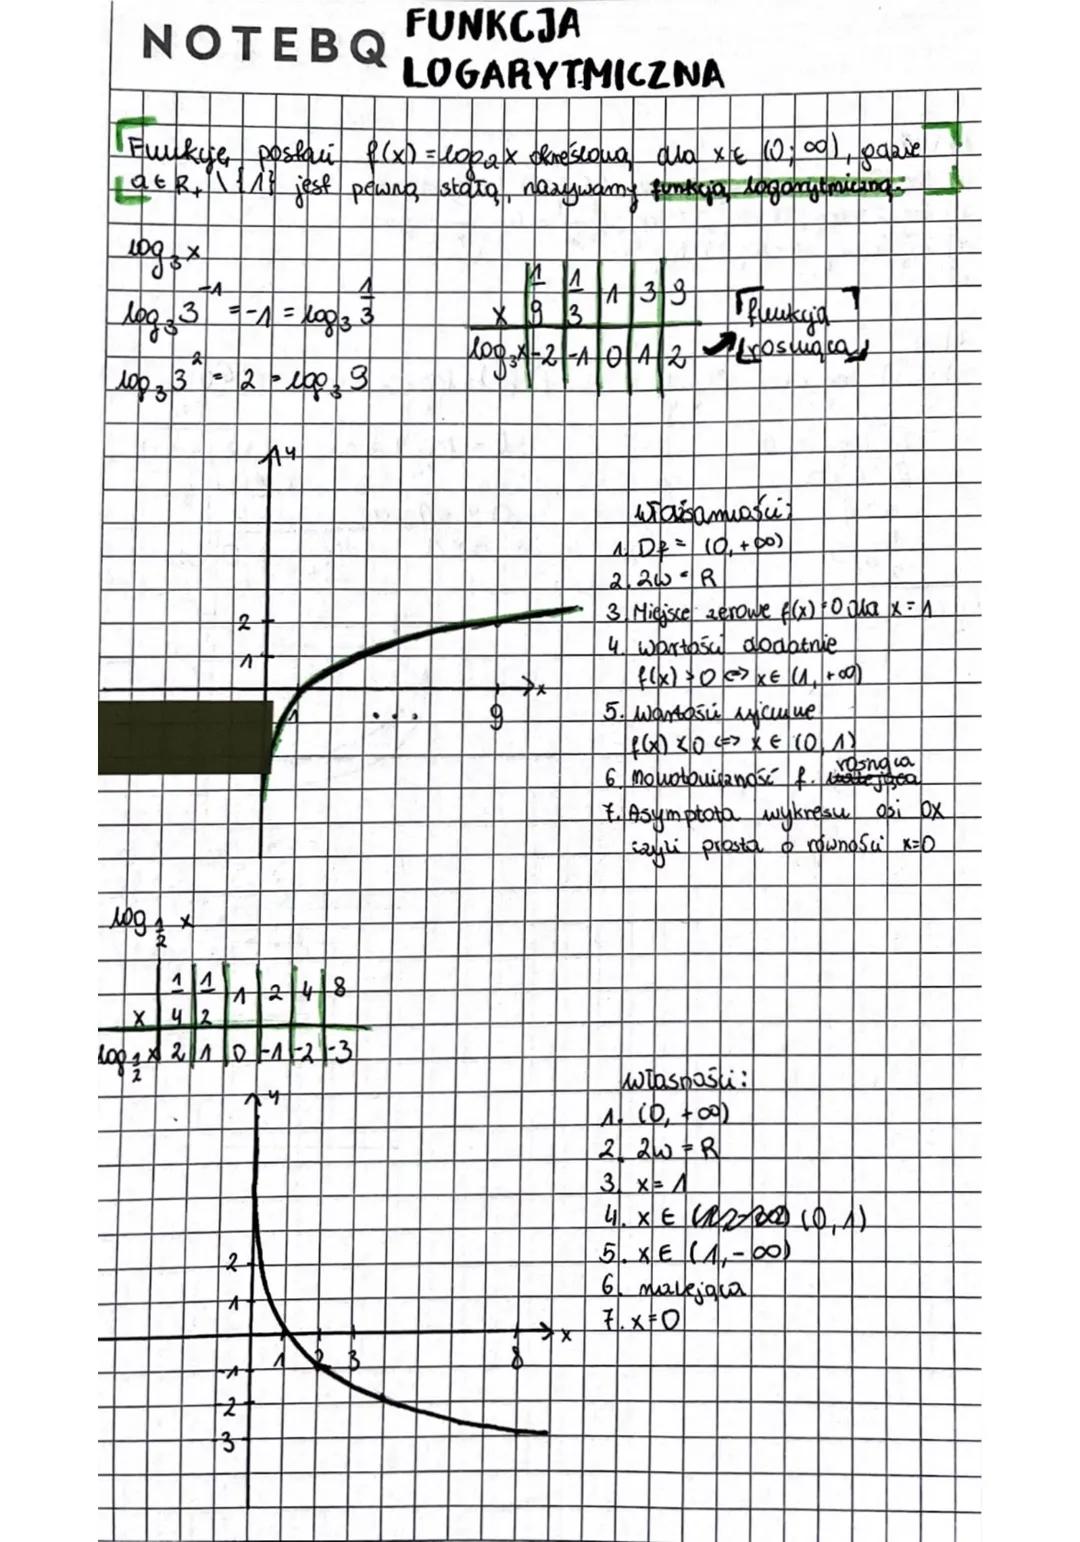 NOTEBQ
FUNKCJA
LOGARYTMICZNA
Funkcję postaci f(x) = log₂x określoną dla x ∈ (0; ∞), gdzie
a ∈ R₊ \ {1} jest pewną stałą, nazywamy funkcją logarytmiczną.
log₃ x
log₃ 3⁻¹ = -1 = log₃ 1/3
log₃ 3² = 2 = log₃ 9
x 1/9 1/3 1 3 9
log₃x -2 -1 0 1 2
funkcja
rosnąca
y
2
1
1 ... 9 x
1. Df = (0, +∞)
2. Zw = R
3. Miejsce zerowe f(x) = 0 dla x = 1
4. wartości dodatnie
f(x) > 0 <=> x ∈ (1, +∞)
5. wartości ujemne
f(x) < 0 <=> x ∈ (0, 1)
rosnąca
6. Monotoniczność f. malejąca
7. Asymptota wykresu osi OX
czyli prosta o równości x=0
log 1/2 x
x 1/4 1/2 1 2 4 8
log 1/2 x 2 1 0 -1 -2 -3
y
2
1
1 2 3 8 x
-1
-2
-3
własności:
1. (0, +∞)
2. Zw = R
3. x = 1
4. x ∈ (0, 1)
5. x ∈ (1, -∞)
6. malejąca
7. x=0